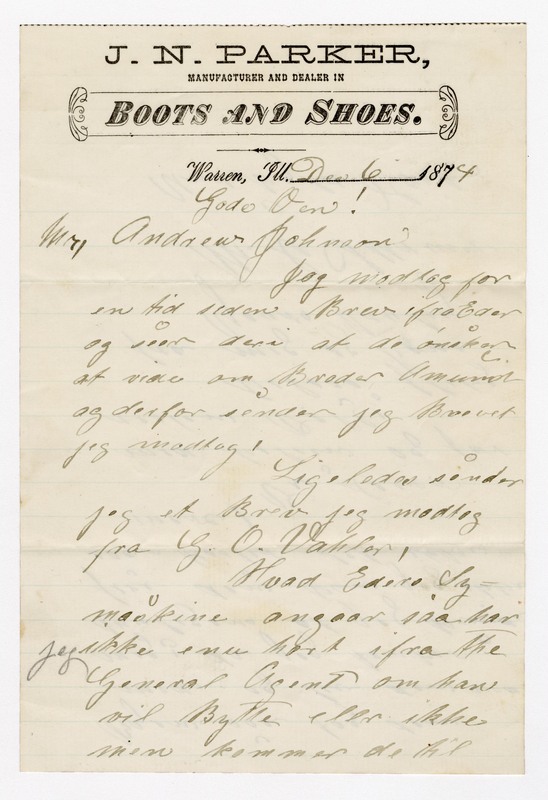 J. N. PARKER,
MANUFACTURER AND DEALER IN
BOOTS AND SHOES.
Warren, Ill. Dec 6 1874
Gode Ven!
Mr, Andrew Johnson
Jag modtog for
en tid siden Brev ifra Eder
og séer deri at de ønsker
at vide om Broder Amund
og derfor sånder jeg Brevet
jeg modtog!
Ligeledes sånder
jeg et Brev jeg modtog
fra G. O. Vahler,
Hvad Eders Sy=
maskine angaar saa har
jeg ikke enu hørt ifra the
General Agent om han
vil Bytte eller ikke
men kommer de til